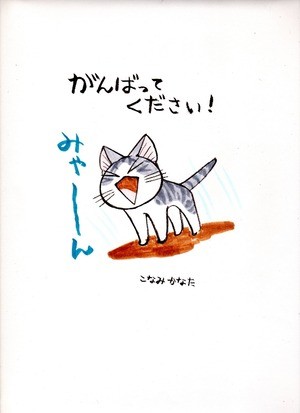 がんばって
ください!
みゃーーん
こなみかなた